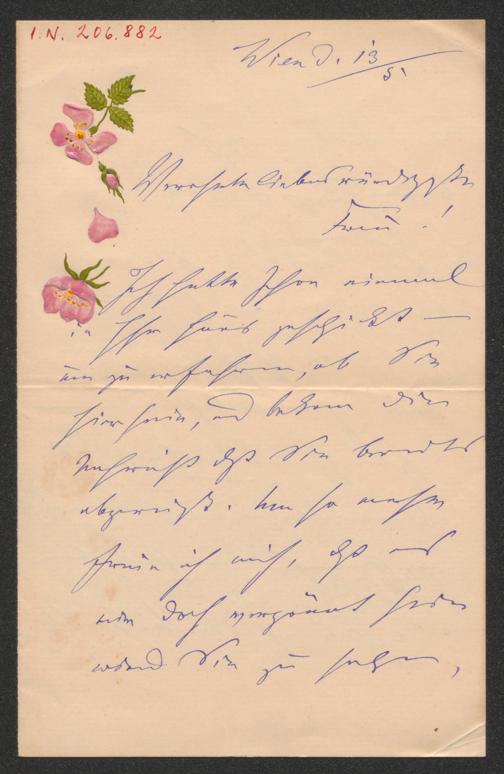 I.N. 206.882
Wien d. 13/5.
Verehrte liebenswürdigste
Frau!
Ich hatte schon einmal
in Ihr Haus geschickt —
um zu erfahren, ob Sie
hier sein, und bekam die
Nachricht daß Sie bereits
abgereist. Um so mehr
freue ich mich, daß es
mir doch vergönnt sein
wird Sie zu sehen,